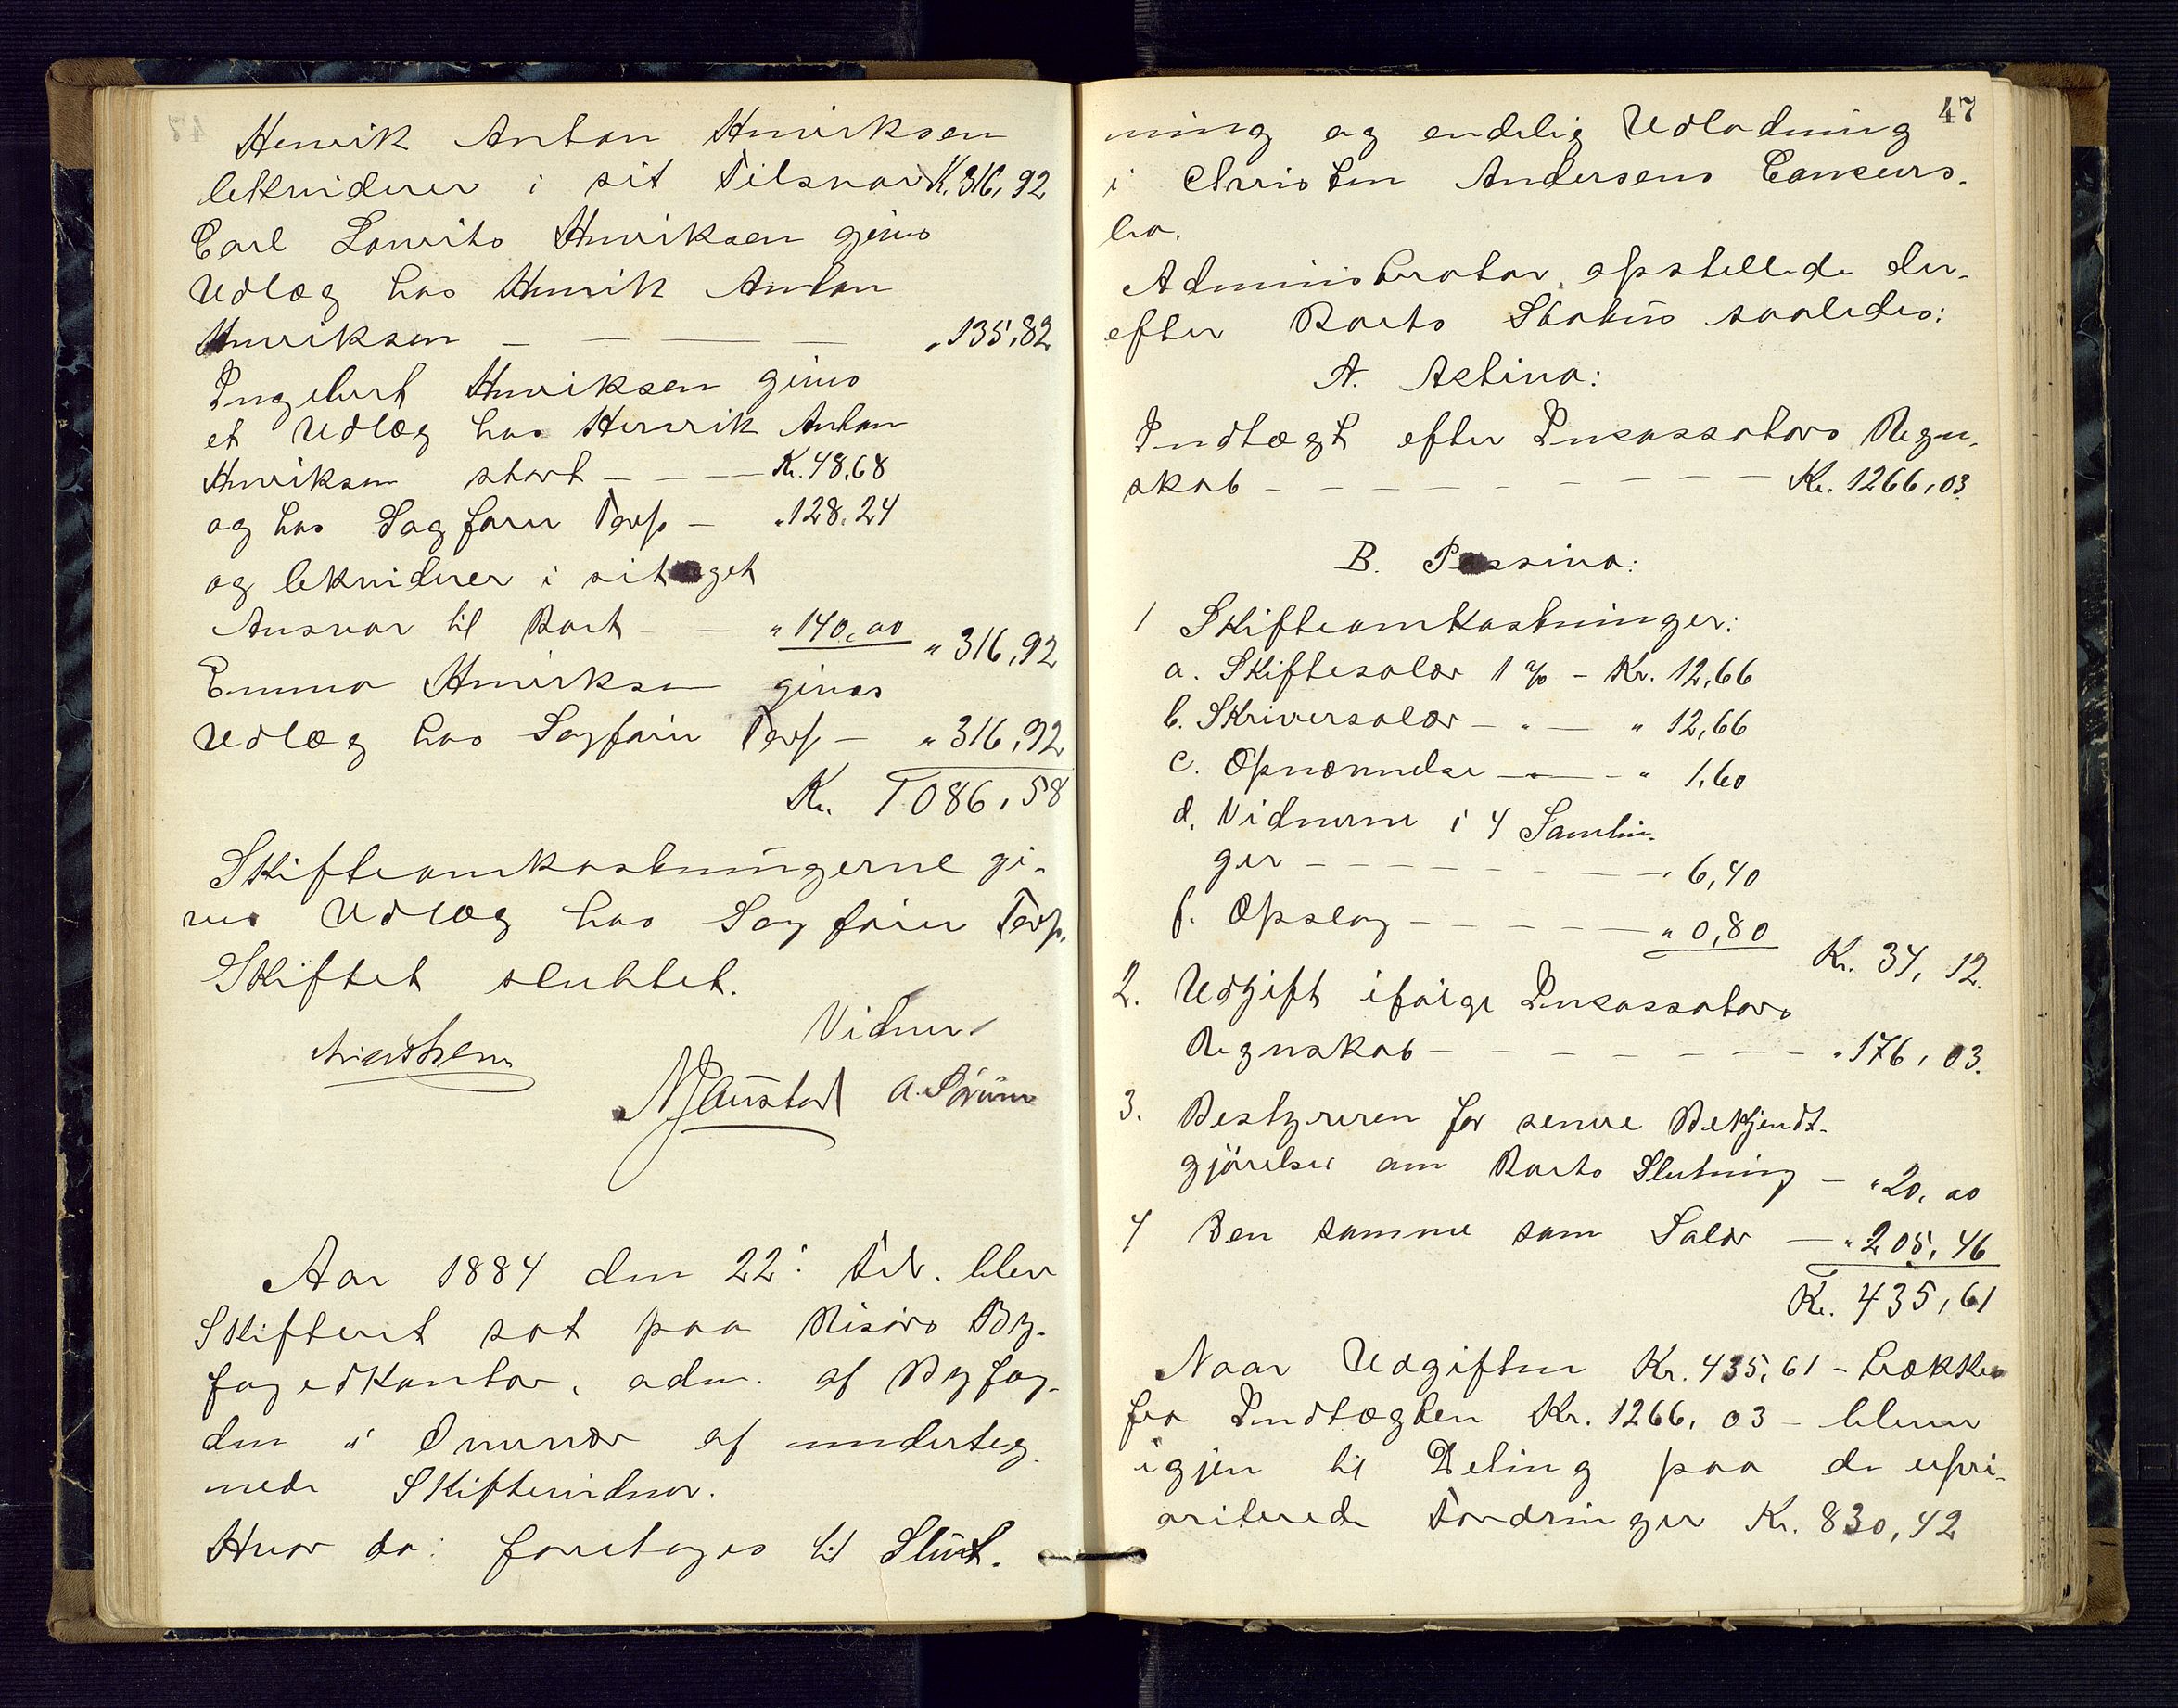 Henrik Anton Henriksen
lekviderer i sit Tilsvar Kr. 316,92
Carl Laurits Henriksen gives
Udlæg hos Henrik Anton
Henriksen — — — — „ 135,82
Ingebert Henriksen gives
et Udlæg hos Henrik Anton
Henriksen stort — — — Kr. 48,68
og hos Sagfører Terp — „ 128,24
og lekviderer i sit eget
Ansvar til Boet — — „ 140,00 „ 316,92
Emma Henriksen gives
Udlæg hos Sagfører Terp — „ 316,92
Kr. 1086,58
Skifteomkostningerne gi-
ves Udlæg hos Sagfører Terp.
Skiftet sluttet.
Vidner
A. Sørum
Aar 1884 den 22: Febr. blev
Skifteret sat paa Risørs By-
fogedkontor, adm. af Byfog-
den i Overvær af underteg-
nede Skiftevidner.
Hvor da: foretoges til Slut-
47
ning og endelig Udlodning
i Christen Andersens Concurs-
bo.
Administrator opstillede der-
efter Boets Status saaledes:
A. Activa:
Indtægt efter Incassators Regn-
skab — — — — — — — — Kr. 1266,03
B. Passiva:
1 Skifteomkostninger:
a. Skiftesalær 1 % — Kr. 12,66
b. Skriversalær — „ — „ 12,66
c. Opnævnelse — — — „ 1,60
d. Vidnerne i 4 Samlin-
ger — — — — — — — „ 6,40
f. Opslag — — — — — „ 0,80 Kr. 34,12.
2. Udgift ifølge Incassators
Regnskab — — — — — — — „ 176,03.
3. Bestyreren for senere Bekjendt-
gjørelser om Boets Slutning — „ 20,00
4 Den samme som Salær — „ 205,46
Kr. 435,61
Naar Udgiften Kr. 435,61 — trækkes
fra Indtægten Kr. 1266,03 — bliver
igjen til Deling paa de upri-
oriterede Fordringer Kr. 830,42